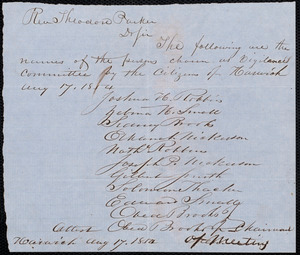 Rev. Theodore Parker
D. Sir
The following are the
names of the persons chosen as Vigilance
Committee by the Citizens of Harwich
Aug 17. 1854
Joshua H. Robbins
H. Small
Sidney Brooks
Elkanah Nickerson
Nath Robbins
Joseph P. Nickerson
Gilbert Smith
Solomon Thacher
Edward Small
Obed Brooks Jr
Attest Obed Brooks Jr Chairman
of Meeting
Harwich Aug 17. 1854